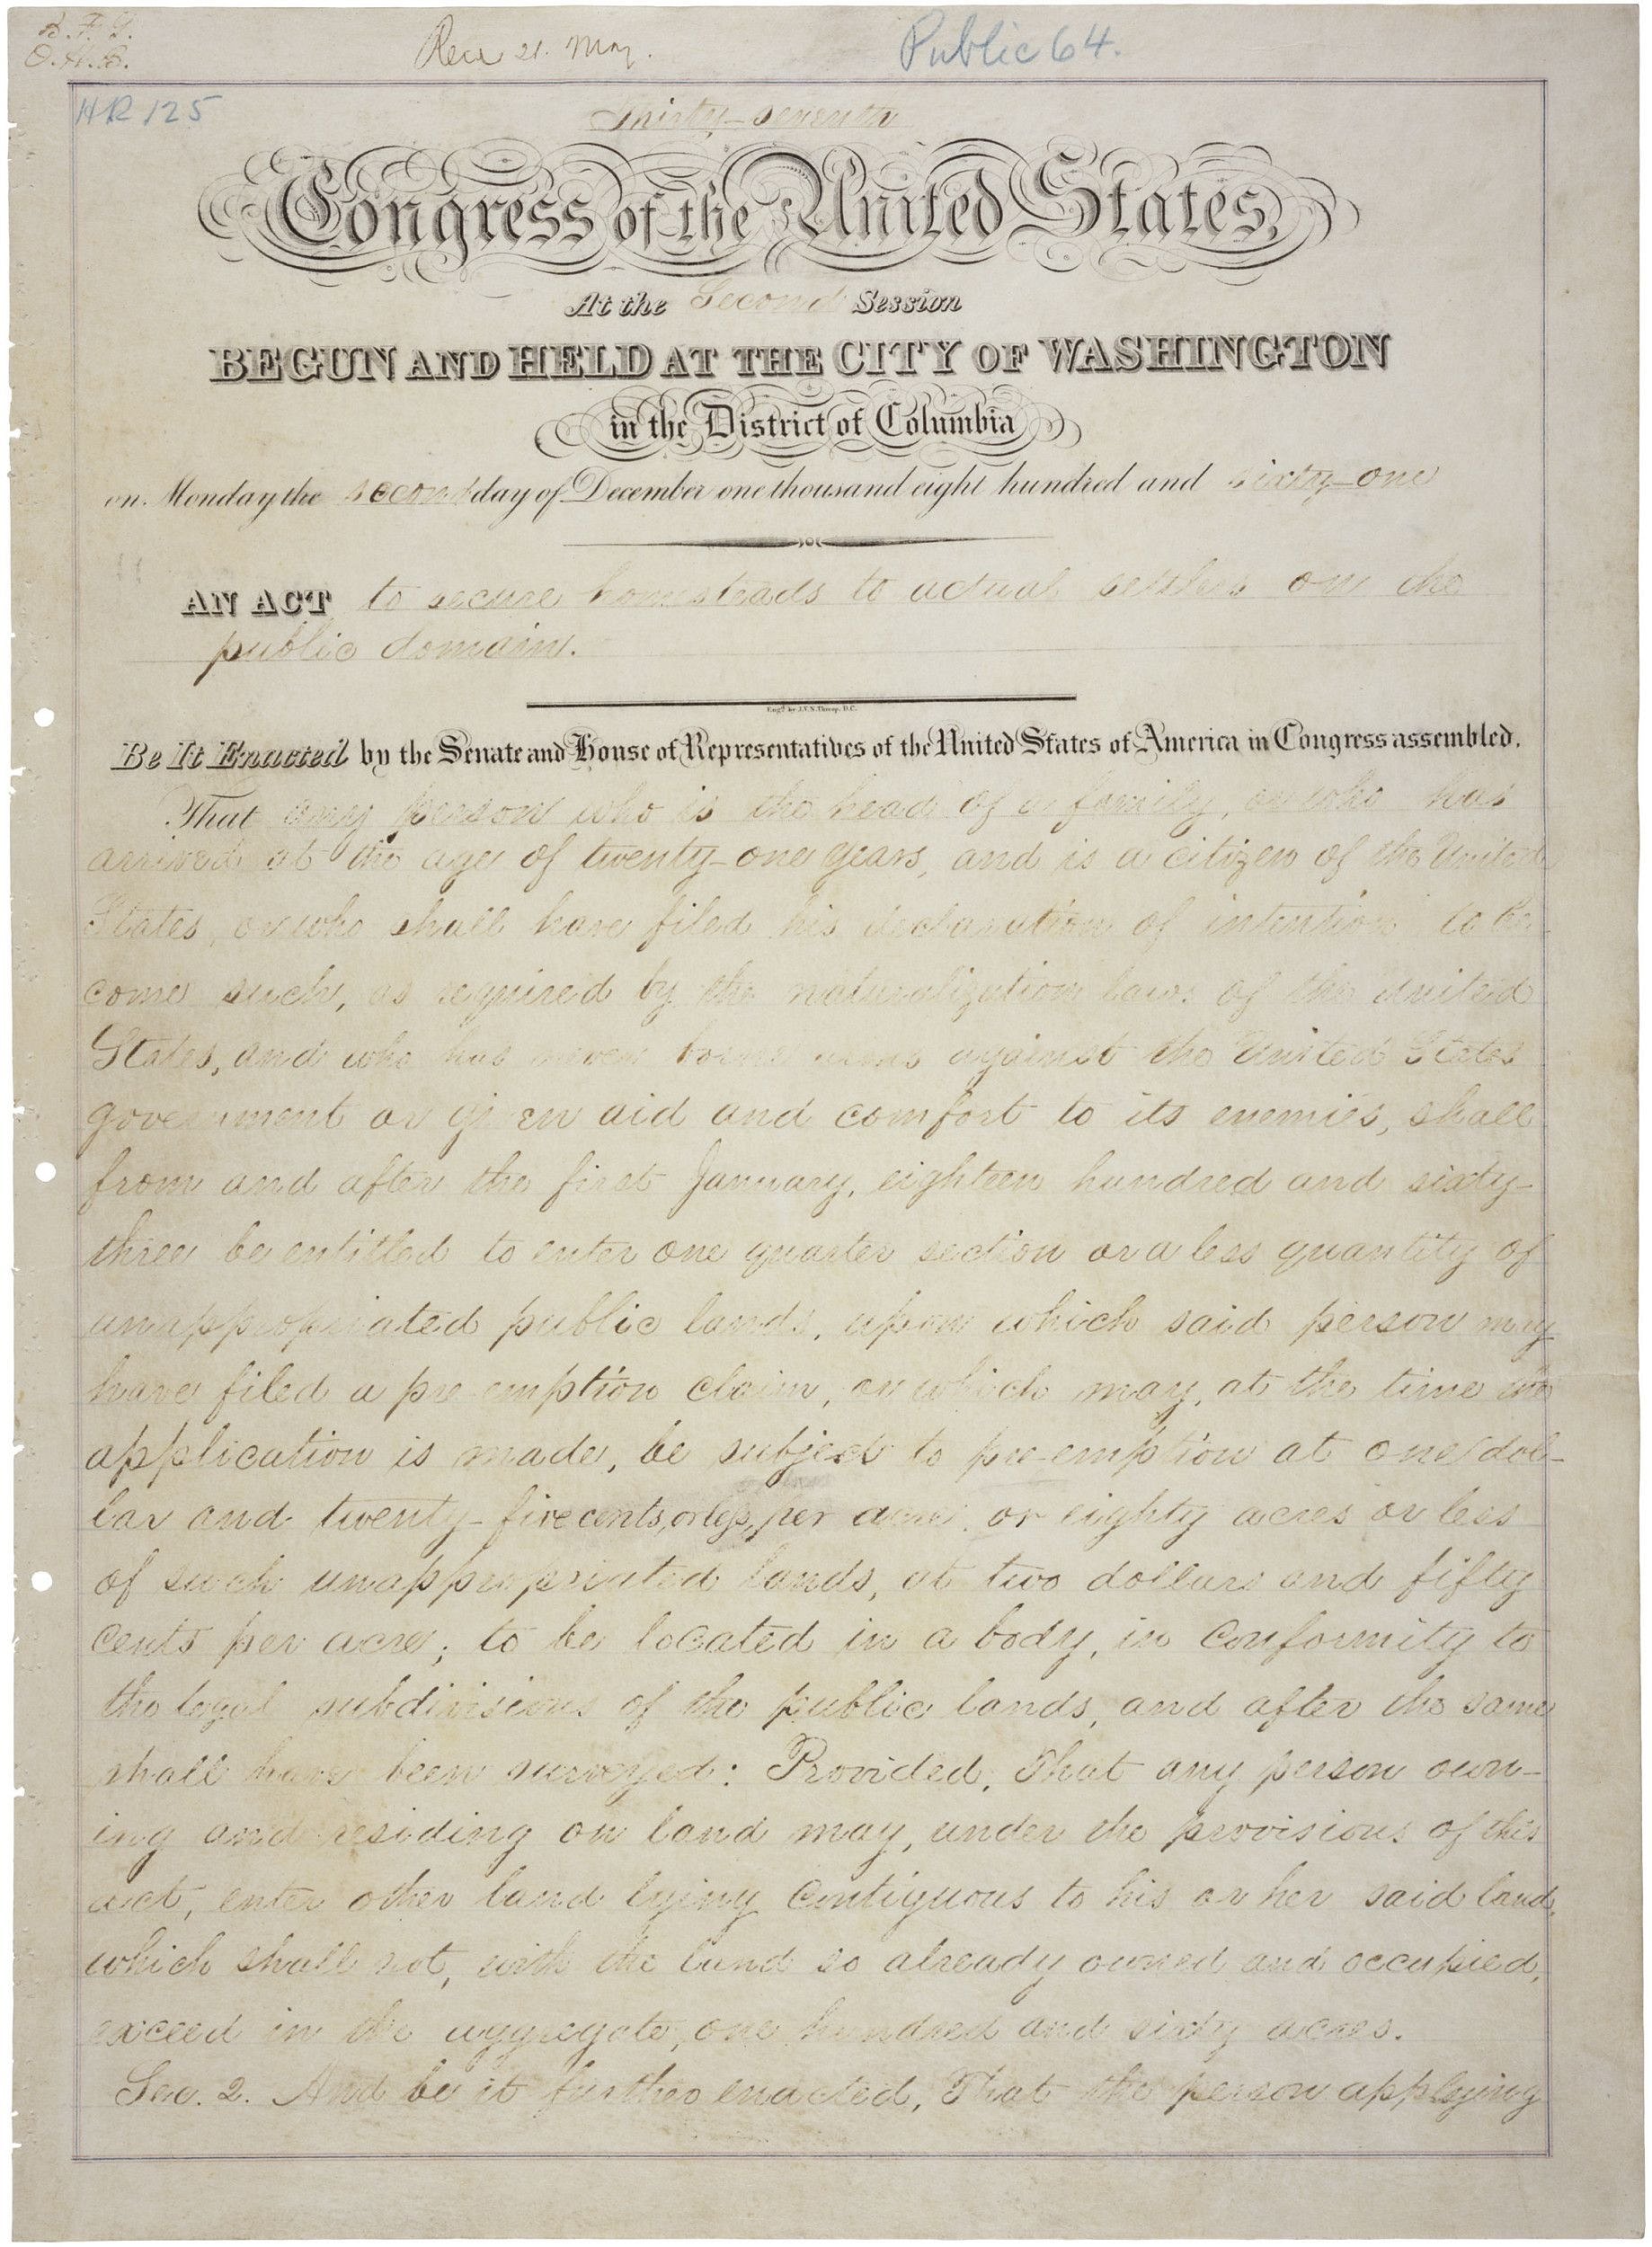 B. F. 
O. H. B.
Rec 21 May.
Public 64.
HR 125
Thirty-seventh
Congress of the United States,
At the Second Session
BEGUN AND HELD AT THE CITY OF WASHINGTON
in the District of Columbia
on Monday the second day of December one thousand eight hundred and sixty-one
AN ACT to secure homesteads to actual settlers on the
public domain.
Engd by J.V.N. Throop, D.C.
Be It Enacted by the Senate and House of Representatives of the United States of America in Congress assembled,
That any person who is the head of a family, or who has
arrived at the age of twenty-one years, and is a citizen of the United
States, or who shall have filed his declaration of intention to be-
come such, as required by the naturalization laws of the United
States, and who has never borne arms against the United States
government or given aid and comfort to its enemies, shall
from and after the first January, eighteen hundred and sixty-
three be entitled to enter one quarter section or a less quantity of
unappropriated public lands, upon which said person may
have filed a pre-emption claim, or which may, at the time the
application is made, be subject to pre-emption at one dol-
lar and twenty-five cents, or less, per acre; or eighty acres or less
of such unappropriated lands, at two dollars and fifty
cents per acre; to be located in a body, in conformity to
the legal subdivisions of the public lands, and after the same
shall have been surveyed: Provided, That any person own-
ing and residing on land may, under the provisions of this
act, enter other land lying contiguous to his or her said land,
which shall not, with the land so already owned and occupied,
exceed in the aggregate, one hundred and sixty acres.
Sec. 2. And be it further enacted, That the person applying